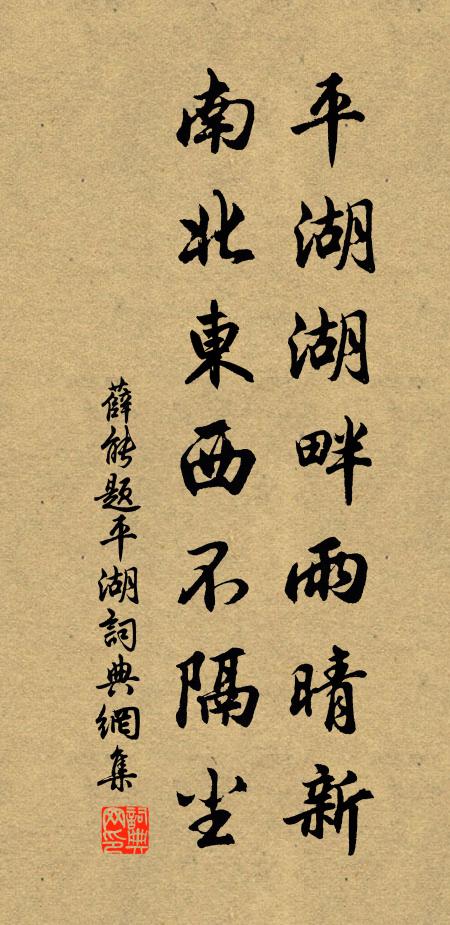 平湖湖畔雨晴新
南北東西不隔尘
薛能题平湖詞典網集
詞典网印